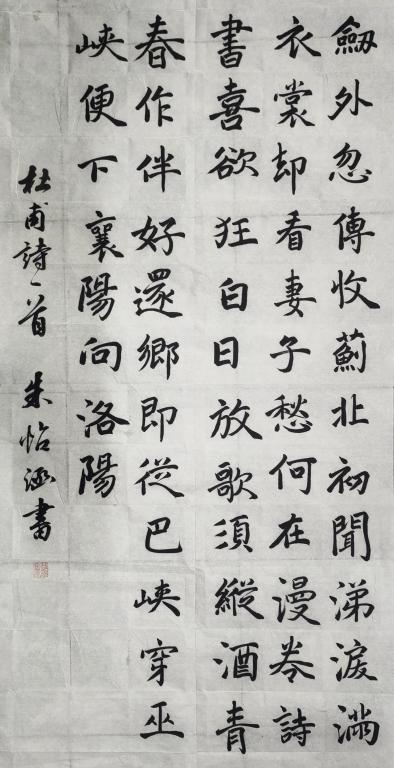 劔外忽傳收薊北初聞涕淚滿
衣裳却看妻子愁何在漫卷詩
書喜欲狂白日放歌須縱酒青
春作伴好還鄉即從巴峽穿巫
峽便下襄陽向洛陽
杜甫詩一首 朱怡涵書